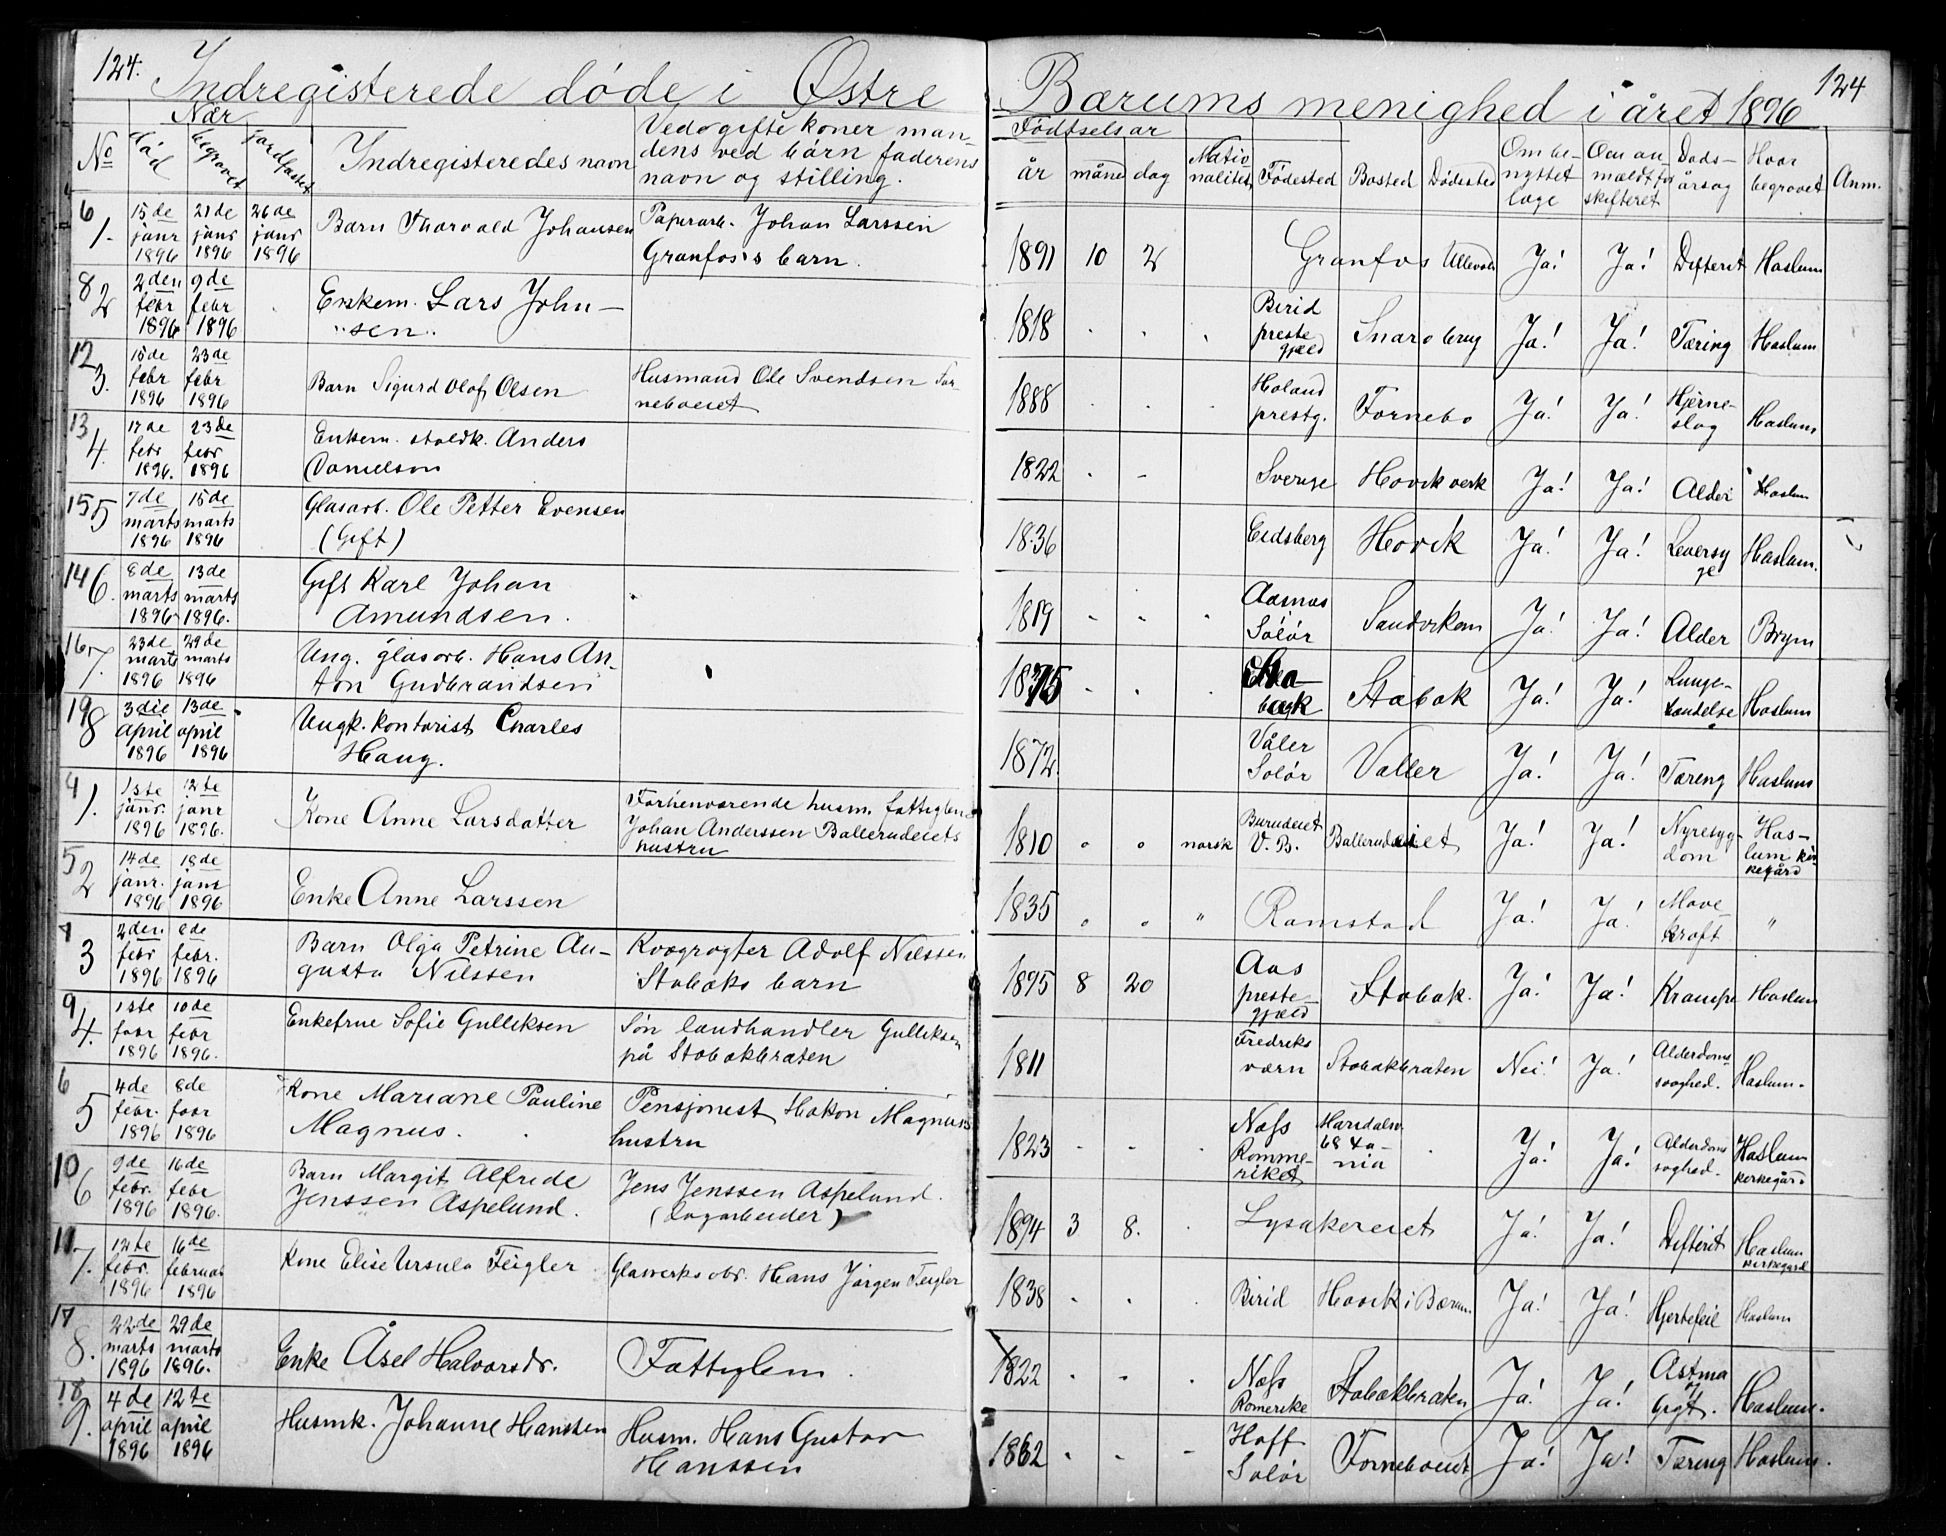 124. Indregisterede døde i Østre Bærums menighed i året 1896 124
Nær
No død begravet jordfæstet Indregisteredes navn
Ved ogifte koner man-
dens ved børn faderens
navn og stilling.
Fødtselsår
år måned dag Natio-
nalitet Fødested Bosted Dødested
Om be-
nyttet
læge
Om an-
mældt for
skifteret
Døds-
årsag
Hvor
begravet
Anm.
6 1. 15de janr 1896 21de janr 1896 26de janr 1896 Barn Thorvald Johansen
Paperarb. Johan Larssen
Granfos's barn.
1891 10 2 Granfos Ullevold Ja! Ja! Difterit Haslum
8 2 2den febr 1896 9de febr 1896 Enkem. Lars John-
sen.
1818 Birid
preste
gjeld
Snarobrug Ja! Ja! Tæring Haslum
12 3. 15de febr 1896 23de febr 1896 Barn Sigurd Olof Olsen
Husmand Ole Svendsen For-
neboeiet
1888 Holand
prestg.
Fornebo Ja! Ja! Hjerne-
slag
Haslum
13 4. 17de febr 1896. 23de febr 1896 Enkem. staldk. Anders
Danielson
1822 Sverige Hovik verk Ja! Ja! Alder Haslum
15 5 7de marts 1896 15de marts 1896 Glasarb. Ole Petter Evensen
(Gift)
1836 Eidsberg Hovik Ja! Ja! Leversy
ge
Haslum.
14 6. 8de marts 1896 13de marts 1896. Gift Karl Johan
Amundsen.
1819 Aasnas
Solør
Sandviken Ja! Ja! Alder Brym
16 7. 23de marts 1896 29de marts 1896 Ung. glasarb. Hans An-
ton Gudbrandsen
1875 Stabæk Ja! Ja! Lunge-
betændelse
Haslum
19 8 3die April 1896 13de april 1896 Ungk. kontorist Charles
Haug.
1872 Våler
Solør
Valler Ja! Ja! Tæring Haslum
4 1. 1ste janr. 1896 12te janr 1896. Kone Anne Larsdatter
Forhenværende husm. fattiglem
Johan Anderssen Ballerudeiets
hustru
1810 norsk Burudeiet
V. B.
Ballerudeiet Ja! Ja! Nyresyg-
dom
Has-
lum kir-
kegård
5 2 14de janr. 1896 18de janr 1896 Enke Anne Larssen
1835 " Ramstad Ja! Ja! Mave
kræft
"
7 3 2den febr 1896 8de febr. 1896 Barn Olga Petrine Au-
gusta Nilssen
Kvægrøgter Adolf Nilssen
Stabæks barn
1895 8 20 Aas
preste-
gjæld
Stabæk. Ja! Ja! Krampe Haslum
9 4. 1ste febr 1896 10de febr 1896. Enkefrue Sofie Gulliksen
Søn landhandler Gulliksen
på Stabækbraten
1811 Fredriks
værn
Stabækbraten Nei! Ja! Alderdoms
svaghed.
Haslum.
6 5 4de febr. 1896 8de febr 1896 Kone Mariane Pauline
Magnus.
Pensjonist Hakon Magnus
hustru
1823 Næss
Romme-
riket
Maridalsv.
68 X a-
nia
Ja! Ja! Alderdoms
svaghed.
Haslum
kirkegård
10 6 9de febr. 1896 16de febr 1896. Barn Margit Alfride
Jenssen Aspelund.
Jens Jenssen Aspelund.
(Dagarbeider)
1894 3 8. Lysakereiet Ja! Ja! Difterit Haslum
kirkegård
11 7. 12te febr. 1896 16de februar 1896 Kone Elise Ursula Feigler
Glasverksarb. Hans Jørgen Feigler
1838 Birid Hovik i Bærum Ja! Ja! Hjertefeil Haslum
17 8. 22de marts 1896 29de marts 1896. Enke Åsel Halvorsdr.
Fattiglem.
1822 Næss
Romerike
Stabækbraten Ja! Ja! Astma
og
Gigt.
Haslum.
18 9. 4de april 1896 12te april 1896 Husmk. Johanne Hanssen
Husm. Hans Gustav
Hanssen
1862 Hoff
Solør
Forneboeiet Ja! Ja! Tæring Haslum.